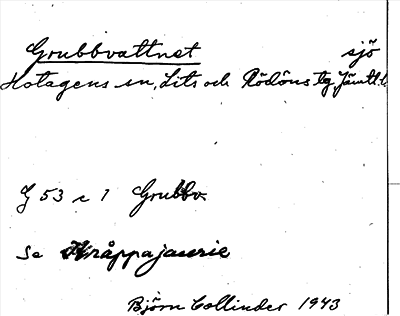 Grubbvattnet sjö
Hotagens sn, Lits och Rödöns tg, Jämtl. l.
J 53 c 1 Grubbv.
Se Kråppajaurie
Björn Collinder 1943